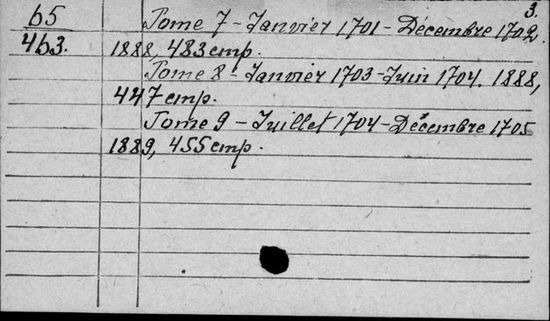 3.
65 Tome 7 - Janvier 1701 - Décembre 1702.
463. 1888, 483 стр.
Tome 8 - Janvier 1703 - Juin 1704. 1888,
447 стр.
Tome 9 - Juillet 1704 - Décembre 1705
1889, 455 стр.